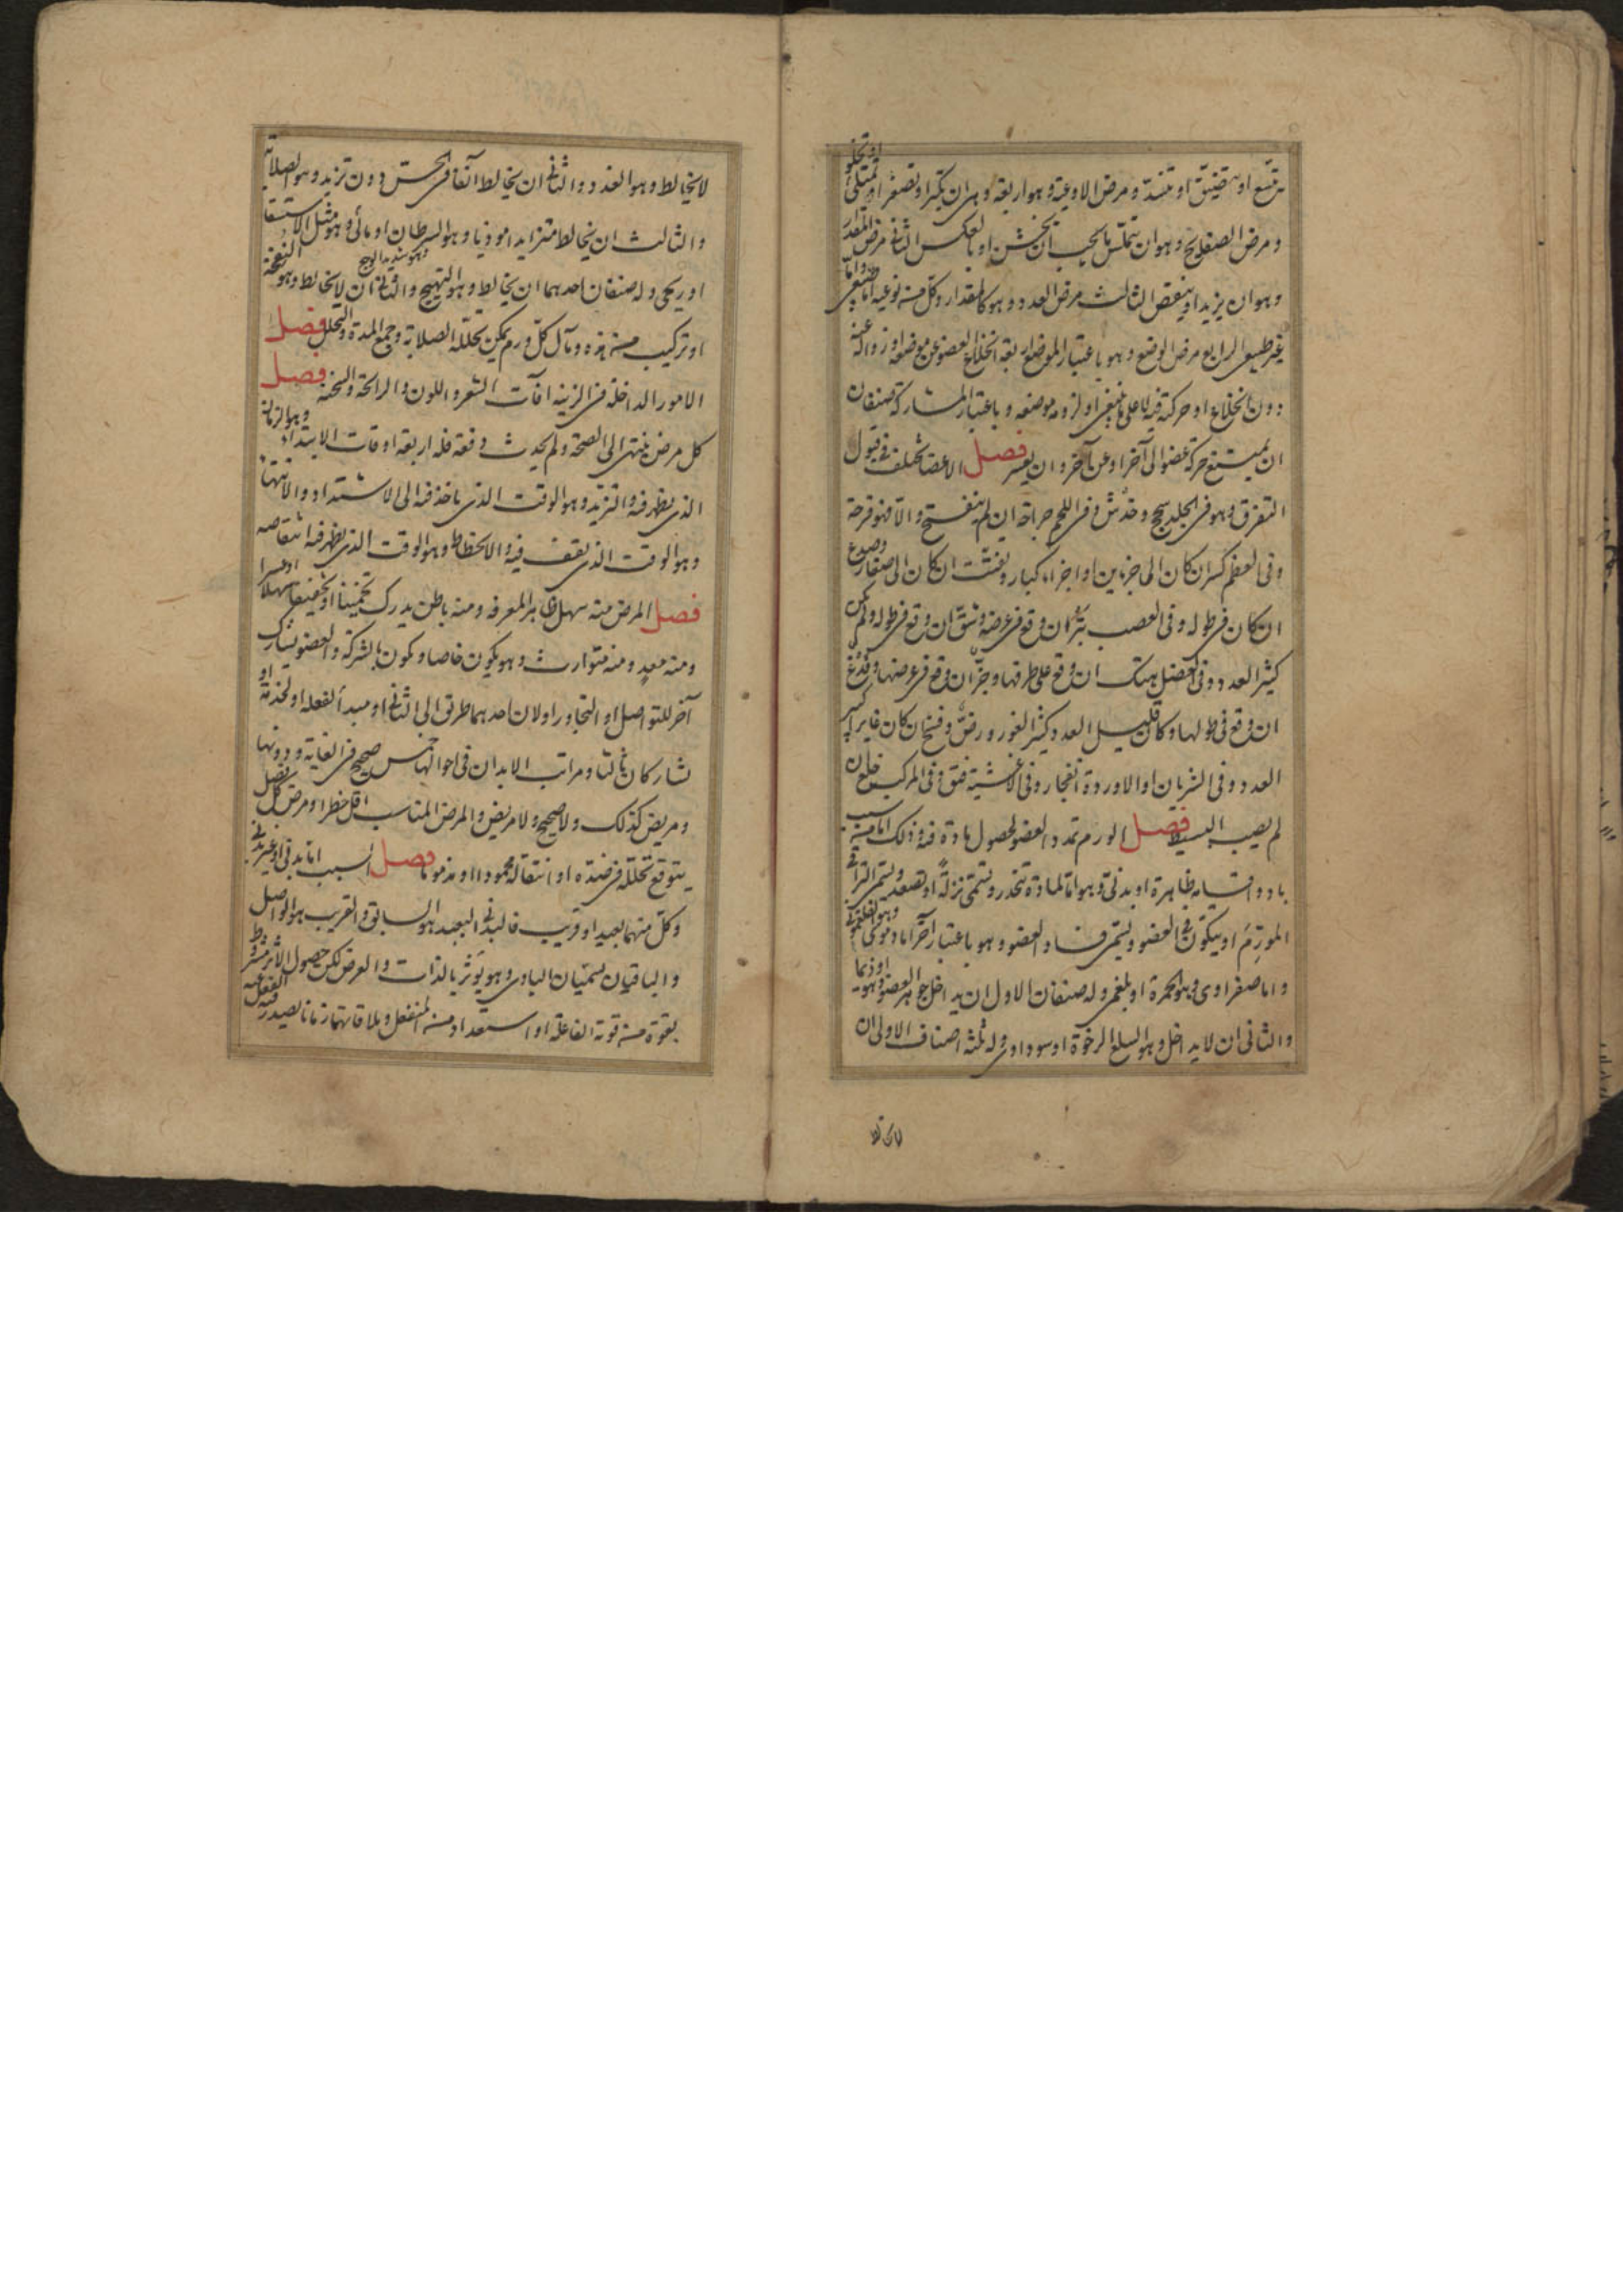 يتسع او يتضيق او تنسد و مرض الاوعية و هو اربعة و هى ان تكبر او تصغر او تمتلئ او تخلو
و مرض الصفايح و هو ان يتملس ما يجب ان يخشن او بالعكس الثانى مرض المقدار
و هو ان يزيد او ينقص الثالث مرض العدد و هو كالمقدار و كل منه نوعيه اما طبيعى و اما
غير طبيعى الرابع مرض الوضع و هو باعتبار الموضع اربعة انخلاع العضو عن موضعه او زواله عنه
دون انخلاع او حركته فيه لا على ما ينبغى او لزومه موضعه و باعتبار المشاركة صنفان
ان يمتنع حركة عضو الى آخر او عن آخر و ان يعسر فصل الاعضا تختلف فى قبول
التفرق و هو فى الجلد سحج و خدش و فى اللحم جراحة ان لم ينفتح و الا فهو قرحة
و فى العظم كسر ان كان الى جزءين او اجزاء كبار و يفتت ان كان الى صغار و صدع
ان كان فى طوله و فى العصب بتر ان وقع فى عرضه و شق ان وقع فى طوله و لم يكن
كثير العدد و فى العضل هتك ان وقع على طرفها و جز ان وقع فى عرضها و فدغ
ان وقع فى طولها و كان قليل العدد كثير الغور و رض و فسخ ان كان غايرا كثير
العدد و فى الشريان او الاوردة انفجار و فى الاغشية فتق و فى المركب خلع ان
لم يصب البسيط فصل الورم تمدد العضو لحصول مادة فيه و ذلك اما من سبب
باد و اقسامه ظاهرة او بدنى و هو اما لمادة تنحدر و تسمى نزلة او تصعد و تسمى التراقى
المورم او يتكون فى العضو و يسمى فساد العضو و هو باعتبار آخر اما دموى و هو الفلغمونى
و اما صفراوى و هو الحمرة او بلغمى و له صنفان الاول ان يداخل جوهر العضو و هو اوذيما
و الثانى ان لا يداخل و هو السلع الرخوة او سوداوى و له ثلثه اصناف الاول ان
لا يخالط و هو الغدد و الثانى ان يخالط آنفا فى الحس دون تزيد و هو الصلابة
و الثالث ان يخالط متزايدا موذيا و هو السرطان او مائى و هو مثل الاستسقا
او ريحى و له صنفان احدهما ان يخالط و هو التهيج و الثانى ان لا يخالط و هو النفخة
او تركيب من هذه و مآل كل ورم يمكن تحلله الصلابة و جمع المدة و التحلل فصل
الامور الداخلة فى الزينه افات الشعر و اللون و الرائحة و السحنة فصل
كل مرض ينتهى الى الصحة و لم يحدث دفعة فله اربعة اوقات الابتداء و هو الزمان
الذى يظهر فيه و التزيد و هو الوقت الذى ياخذ فيه الى الاشتداد و الانتهاء
و هو الوقت الذى يقف فيه و الانحطاط و هو الوقت الذى يظهر فيه انتقاصه
فصل المرض منه سهل ظاهر المعرفه و منه باطن يدرك تخمينا او تحقيقا سهلا او عسرا
و منه معد و منه متوارث و هو يكون خاصا و يكون بالشركة و العضو يشارك
آخر للتواصل او التجاور او لان احدهما طريق الى الثانى او مبدأ لفعله او لخدمة او
تشاركان ثالثا و مراتب الابدان فى احوالها خمس صحيح فى الغاية و دونها
و مريض كذلك و لا صحيح و لا مريض و المرض المناسب اقل خطرا و مرض كل فصل
يتوقع تحلله فى ضده او انتقاله محمودا او مذموما فصل السبب اما بدنى او غير بدنى
و كل منهما بعيد او قريب فالبدنى البعيد هو السابق و القريب هو الواصل
و الباقيان يسميان البادى و هو يؤثر بالذات و العرض لكن حصول الاثر مشروط
بقوة من قوته الفاعلة او استعداد من المنفعل و ملاقاتهما زمانا يصدر فيه الفعل عنه